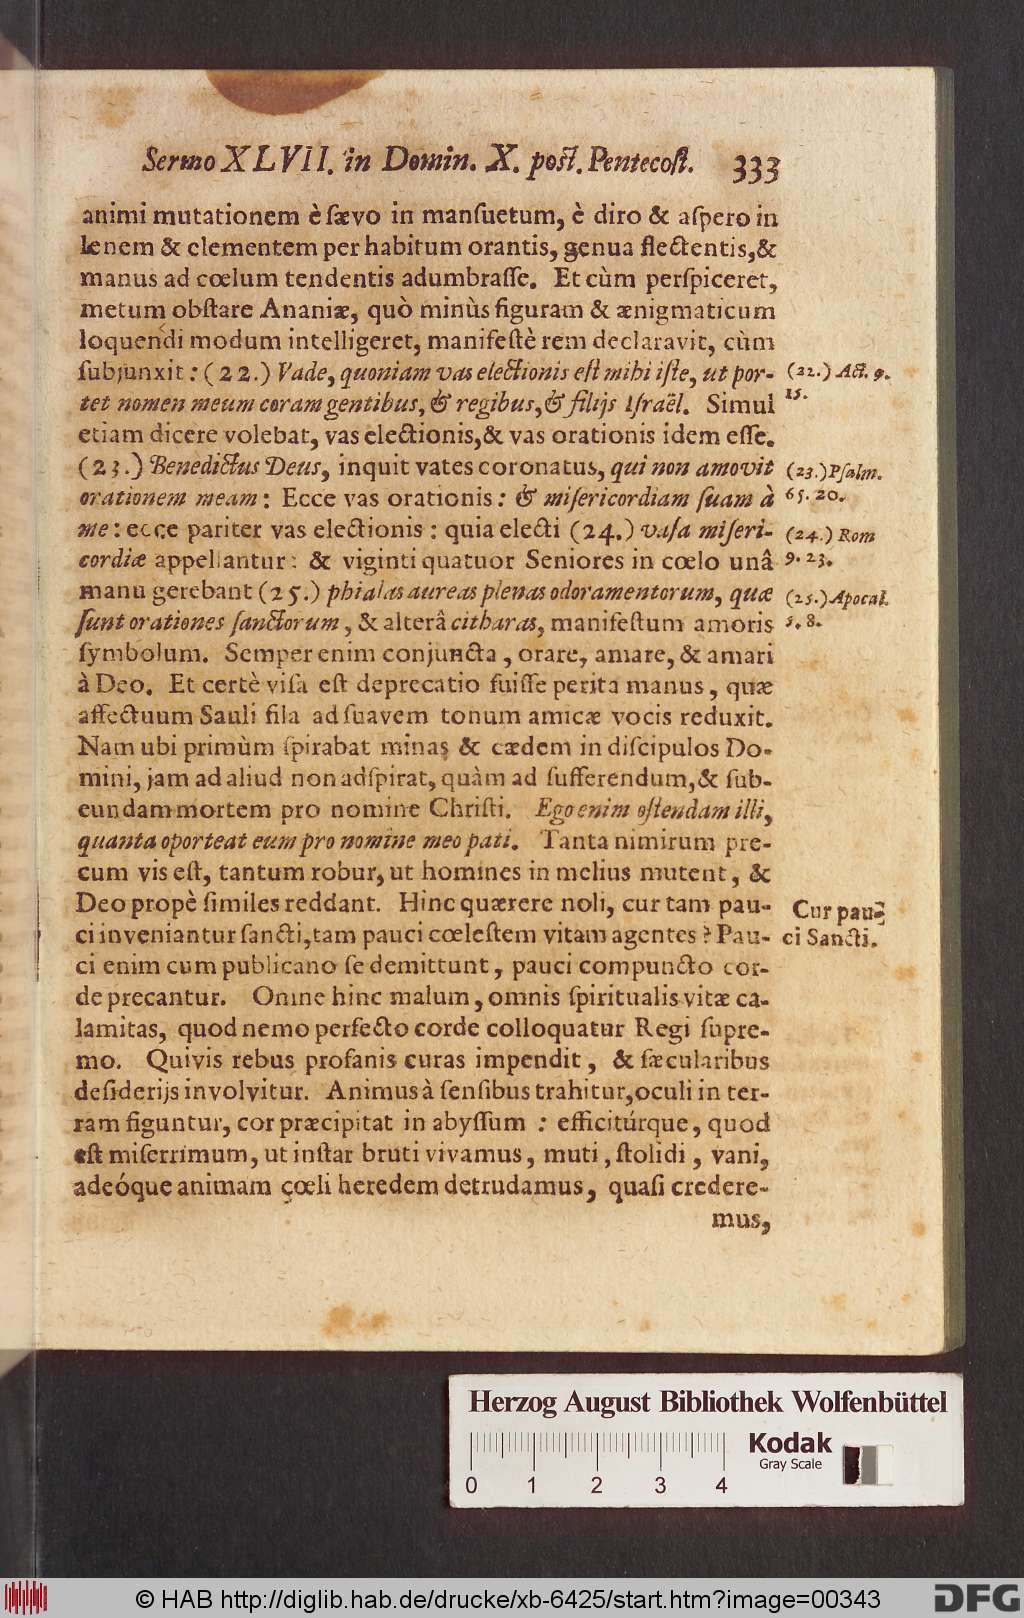 Sermo XLVII. in Domin. X. post. Pentecost. 333
animi mutationem è sævo in mansuetum, è diro & aspero in
lenem & clementem per habitum orantis, genua flectentis, &
manus ad cœlum tendentis adumbrasse. Et cùm perspiceret,
metum obstare Ananiæ, quò minùs figuram & ænigmaticum
loquendi modum intelligeret, manifestè rem declaravit, cùm
subjunxit: (22.) Vade, quoniam vas electionis est mihi iste, ut por-
(22.) Act. 9.
15.
tet nomen meum coram gentibus, & regibus, & filijs Israël. Simul
etiam dicere volebat, vas electionis, & vas orationis idem esse.
(23.) Benedictus Deus, inquit vates coronatus, qui non amovit
(23.) Psalm.
65. 20.
orationem meam: Ecce vas orationis: & misericordiam suam à
me: ecce pariter vas electionis: quia electi (24.) vasa miseri-
(24.) Rom
9. 23.
cordiæ appellantur: & viginti quatuor Seniores in cœlo unâ
manu gerebant (25.) phialas aureas plenas odoramentorum, quæ
(25.) Apocal.
5. 8.
sunt orationes sanctorum, & alterâ citharas, manifestum amoris
symbolum. Semper enim conjuncta, orare, amare, & amari
à Deo. Et certè visa est deprecatio fuisse perita manus, quæ
affectuum Sauli fila ad suavem tonum amicæ vocis reduxit.
Nam ubi primùm spirabat minas & cædem in discipulos Do-
mini, jam ad aliud non adspirat, quàm ad sufferendum, & sub-
eundam mortem pro nomine Christi. Ego enim ostendam illi,
quanta oporteat eum pro nomine meo pati. Tanta nimirum pre-
cum vis est, tantum robur, ut homines in melius mutent, &
Deo propè similes reddant. Hinc quærere noli, cur tam pau-
Cur pau-
ci Sancti.
ci inveniantur sancti, tam pauci cœlestem vitam agentes? Pau-
ci enim cum publicano se demittunt, pauci compuncto cor-
de precantur. Omne hinc malum, omnis spiritualis vitæ ca-
lamitas, quod nemo perfecto corde colloquatur Regi supre-
mo. Quivis rebus profanis curas impendit, & sæcularibus
desiderijs involvitur. Animus à sensibus trahitur, oculi in ter-
ram figuntur, cor præcipitat in abyssum: efficitúrque, quod
est miserrimum, ut instar bruti vivamus, muti, stolidi, vani,
adeóque animam cœli heredem detrudamus, quasi credere-
mus,
Herzog August Bibliothek Wolfenbüttel
Kodak
Gray Scale
0 1 2 3 4
© HAB http://diglib.hab.de/drucke/xb-6425/start.htm?image=00343
DFG